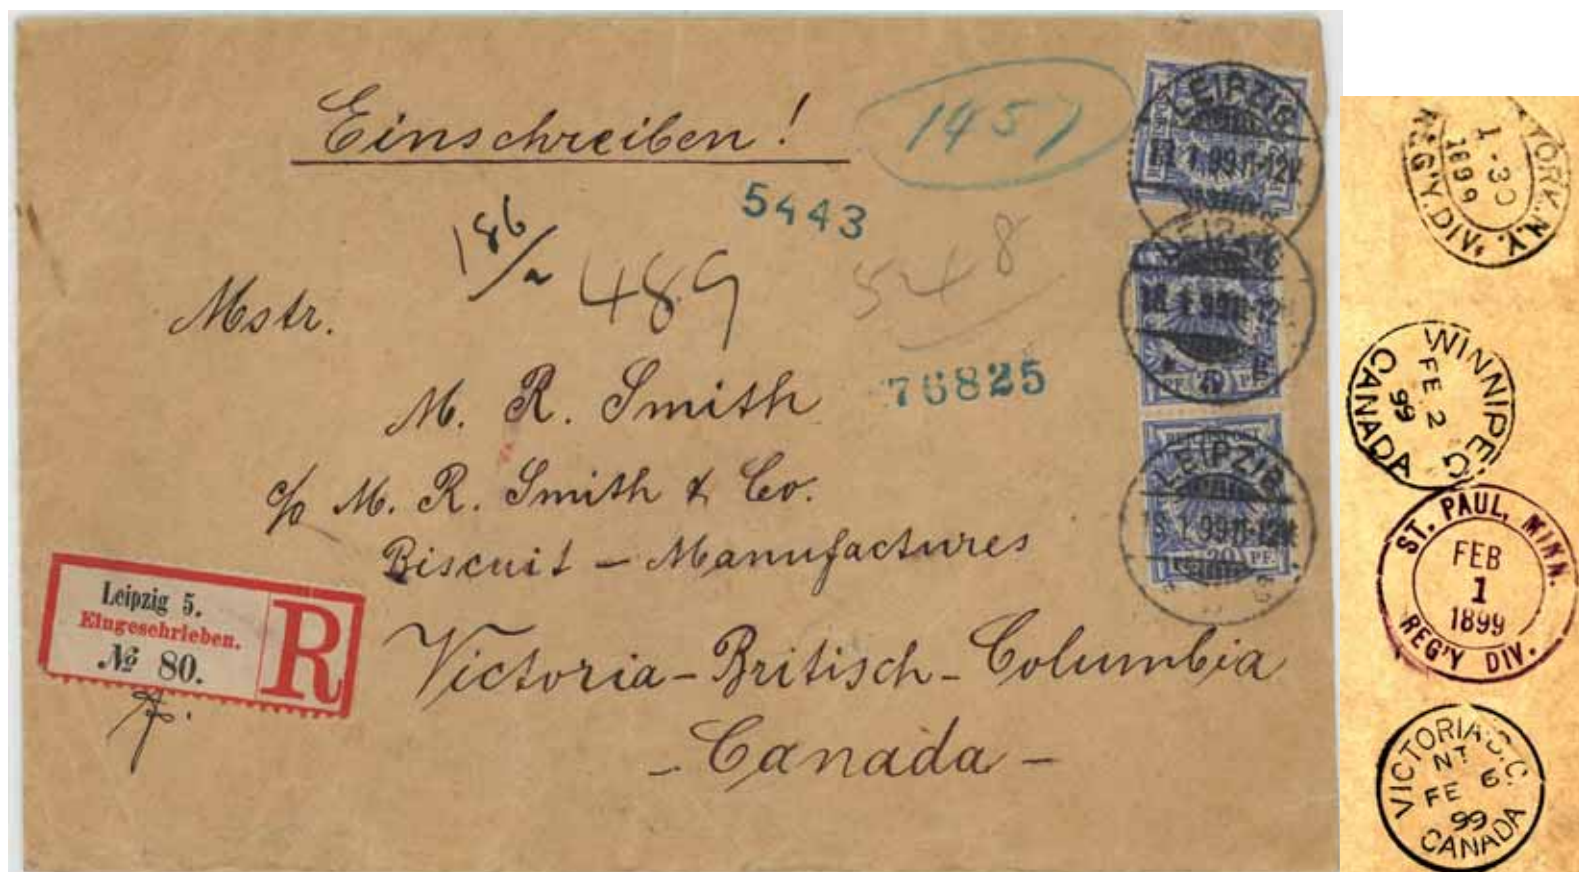 Einschreiben!
1457
5443
186/~
489
548
76825
Mstr.
M. R. Smith
c/o M. R. Smith & Co.
Biscuit – Manufactures
Victoria – Britisch – Columbia
– Canada –
Leipzig 5.
Eingeschrieben.
№ 80.
R
LEIPZIG
1.99 11-12V.
LEIPZIG
1.99 11-12
5
PF. PF.
REICHSPOST
LEIPZIG
1.99 11-12V.
20 PF.
YORK, N.Y.
1-30
1899
REG'Y. DIV.
WINNIPEG
FE 2
99
CANADA
ST. PAUL, MINN.
FEB
1
1899
REG'Y DIV.
VICTORIA B.C.
NT
FE 6
99
CANADA